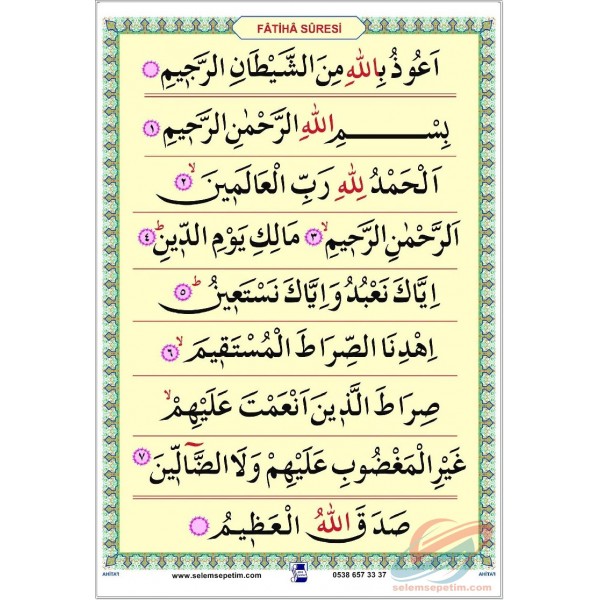 FÂTİHÂ SÛRESİ
اَعُوذُ بِاللّٰهِ مِنَ الشَّيْطَانِ الرَّجٖيمِ
بِسْمِ اللّٰهِ الرَّحْمٰنِ الرَّحٖيمِ ١
اَلْحَمْدُ لِلّٰهِ رَبِّ الْعَالَمٖينَۙ ٢
اَلرَّحْمٰنِ الرَّحٖيمِۙ ٣ مَالِكِ يَوْمِ الدّٖينِؕ ٤
اِيَّاكَ نَعْبُدُ وَاِيَّاكَ نَسْتَعٖينُؕ ٥
اِهْدِنَا الصِّرَاطَ الْمُسْتَقٖيمَۙ ٦
صِرَاطَ الَّذٖينَ اَنْعَمْتَ عَلَيْهِمْۙ
غَيْرِ الْمَغْضُوبِ عَلَيْهِمْ وَلَا الضَّٓالّٖينَ ٧
صَدَقَ اللّٰهُ الْعَظٖيمُ
AHİTAFI www.selemsepetim.com 0538 657 33 37 AHİTAFI
selemsepetim.com